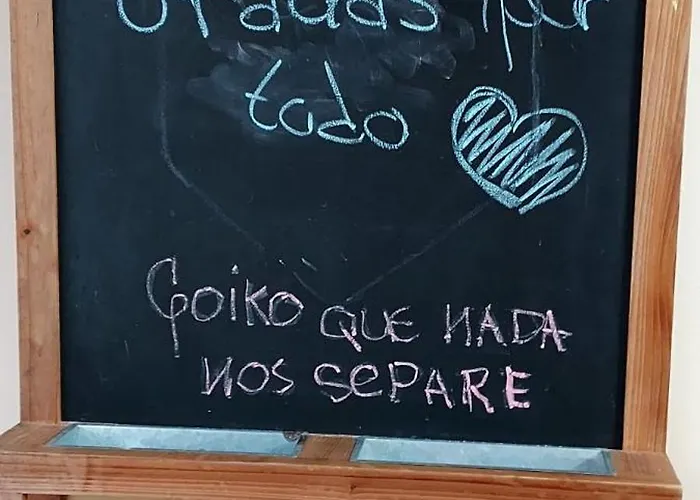 Gracias por
todo
Goiko QUE NADA
NOS SePARE